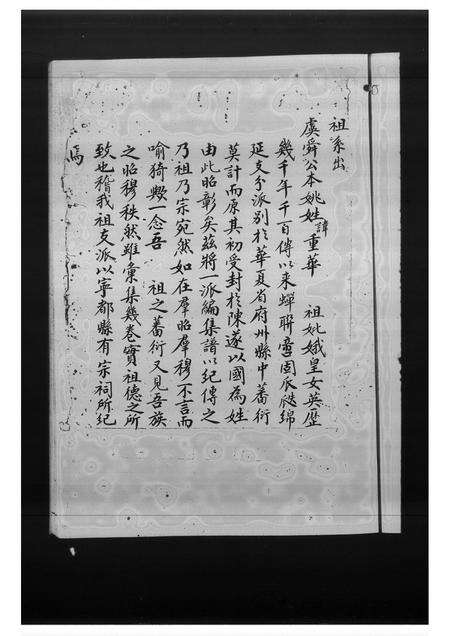 祖系出
虞舜公本姚姓諱重華 祖妣娥皇女英歷
幾千年千百傳以來蟬聯鞏固瓜瓞綿
延支分派別於華夏省府州縣中蕃衍
莫計而原其初受封於陳遂以國為姓
由此昭彰矣茲將一派編集譜以紀傳之
乃祖乃宗宛然如在羣昭羣穆不言而
喻猗歟一念吾 祖之蕃衍又見吾族
之昭穆秩然雖彙集幾卷實祖德之所
致也稽我祖支派以寧都縣有宗祠所紀
焉